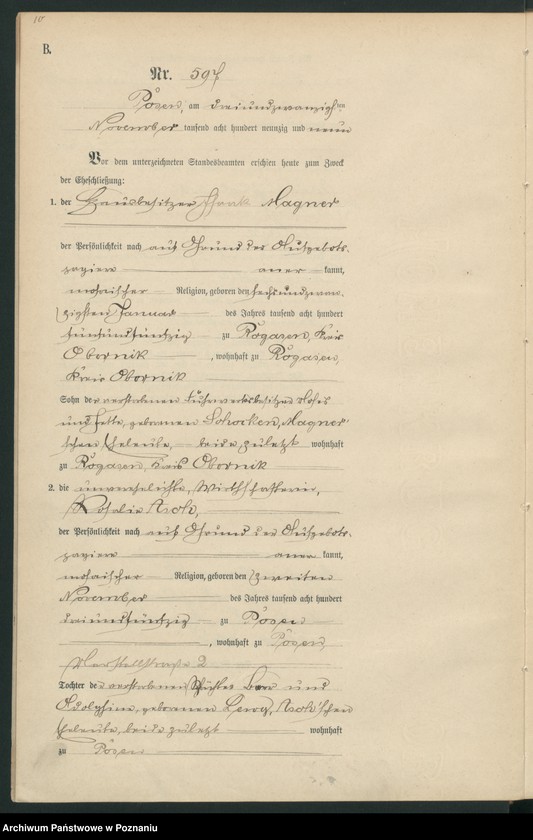 10
B.
Nr. 597
Posen, am dreiundzwanzigsten
November tausend acht hundert neunzig und neun
Vor dem unterzeichneten Standesbeamten erschien heute zum Zweck
der Eheschließung:
1. der Hausbesitzer Magner
der Persönlichkeit nach auf Grund des Aufgebots-
papiere anerkannt,
mosaischer Religion, geboren den sechsundzwan-
zigsten Januar des Jahres tausend acht hundert
fünfundfünfzig zu Rogasen, Kreis
Obornik, wohnhaft zu Rogasen,
Kreis Obornik
Sohn der verstorbenen Fuhrwerksbesitzer Moses
und Jette, geborenen Schocken, Magner'
schen Eheleute, beide zuletzt wohnhaft
zu Rogasen, Kreis Obornik
2. die unverehelichte, Wirthschafterin,
Rosalie Asch,
der Persönlichkeit nach auf Grund des Aufgebots-
papiere anerkannt,
mosaischer Religion, geboren den zweiten
November des Jahres tausend acht hundert
dreiundfünfzig zu Posen
, wohnhaft zu Posen,
2
Tochter der verstorbenen und
geborenen Asch'schen
Eheleute, beide zuletzt wohnhaft
zu Posen
Archiwum Państwowe w Poznaniu